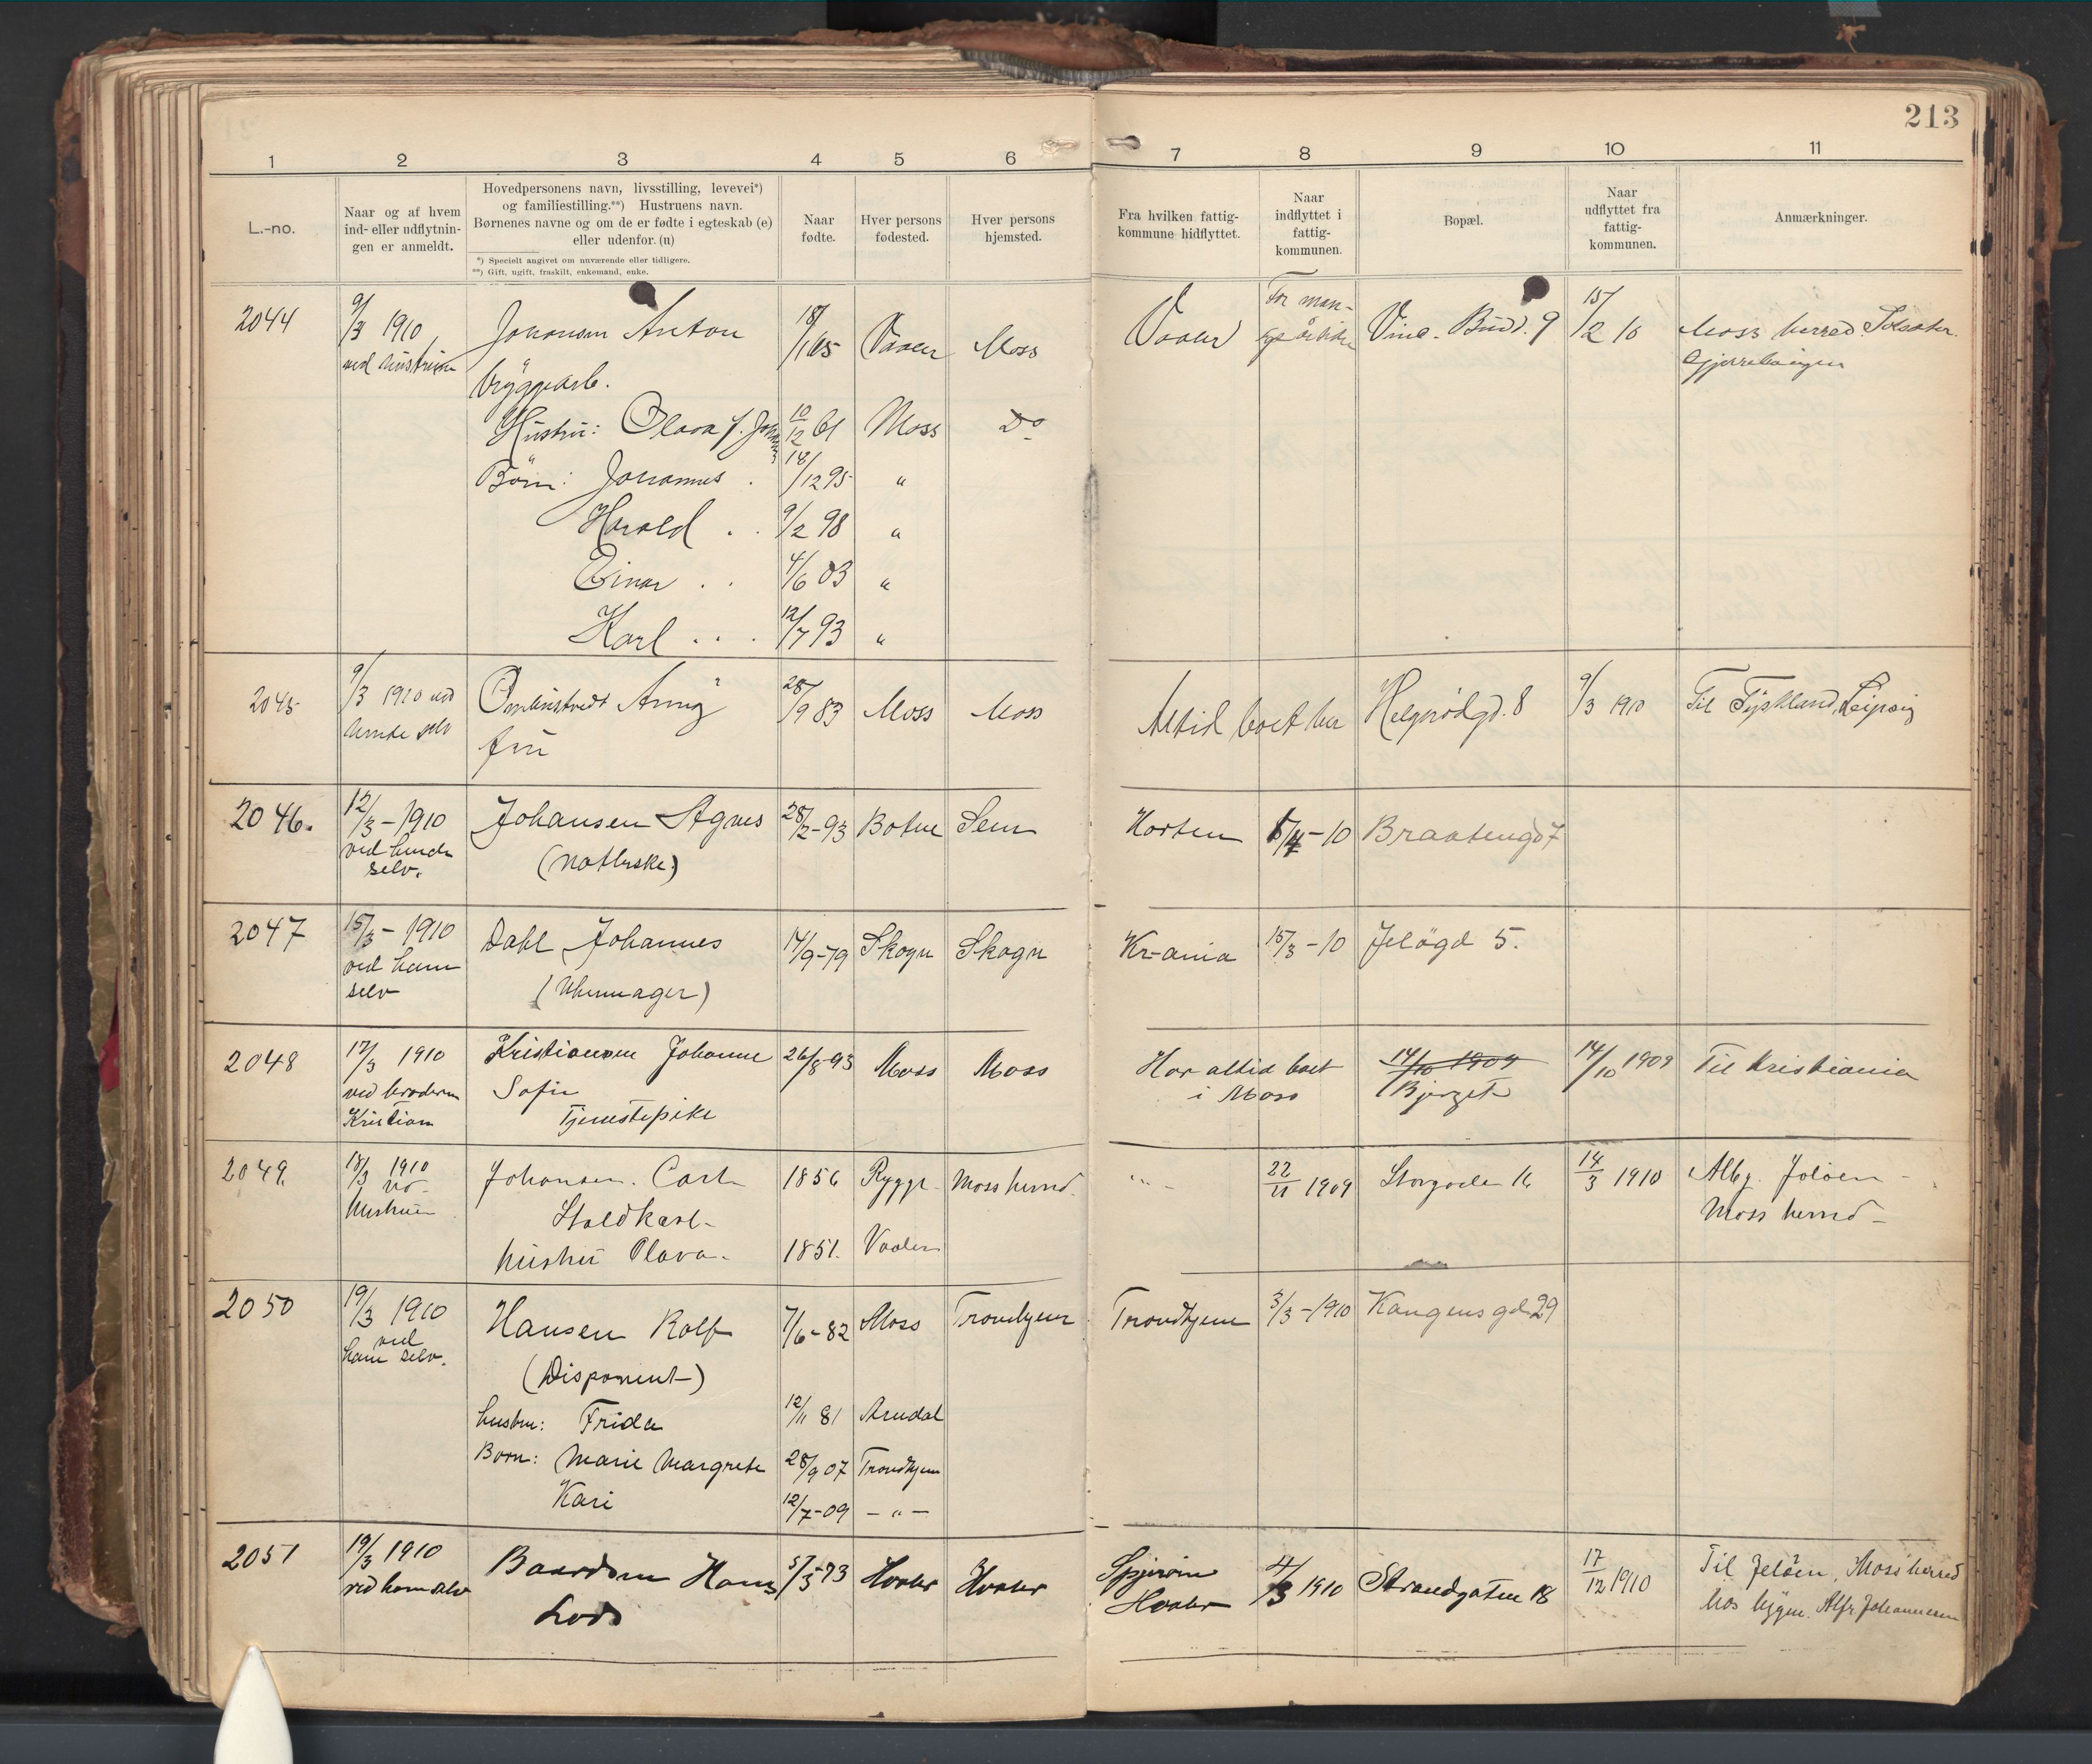 213
1 2 3 4 5 6 7 8 9 10 11
L.-no.
Naar og af hvem
ind- eller udflytnin-
gen er anmeldt.
Hovedpersonens navn, livsstilling, levevei*)
og familiestilling.**) Hustruens navn.
Børnenes navne og om de er fødte i egteskab (e)
eller udenfor. (u)
*) Specielt angivet om nuværende eller tidligere.
**) Gift, ugift, fraskilt, enkemand, enke.
Naar
fødte.
Hver persons
fødested.
Hver persons
hjemsted.
Fra hvilken fattig-
kommune hidflyttet.
Naar
indflyttet i
fattig-
kommunen.
Bopæl.
Naar
udflyttet fra
fattig-
kommunen.
Anmærkninger.
2044 9/3 1910 Johansen Anton 18/1 65 Vaaler Moss Vaaler For man- 9 15/2 10 Moss herred
ved hustruen
bryggearb.
Hustru: Olava f. 10/12 61 Moss Do
Børn: Johannes 18/12 95 "
Harald 9/2 98 "
Einar 4/6 03 "
Karl 12/7 93 "
2045 9/3 1910 ved Anny 28/9 83 Moss Moss Altid boet her Helgerødgd. 8 9/3 1910 Til Tyskland, Leipzig
hende selv
2046. 12/3 - 1910 Johansen Agnes 28/2-93 Botne Sem Horten -10 Braatengd 7
ved hende
selv.
2047 15/3 - 1910 Dahl Johannes 14/9-79 Skogn Skogn Kr-ania 15/3 -10 Jeløgd 5.
ved ham
selv
(Uhrmager)
2048 17/3 1910 Kristiansen Johanne 26/8-93 Moss Moss Har altid boet 14/10 1909 14/10 1909 Til Kristiania
ved broderen Sofie i Moss Bjerget
Kristian Tjenestepike
2049. 18/3 1910 Johansen. Carl 1856 Rygge Moss herred. 22/11 1909 Storgaden 16 14/3 1910 Alby. Jeløen -
ved Moss herred -
hustruen Staldkarl-
hustru Olava. 1851. Vaaler
2050 19/3 1910 Hansen Rolf 7/6-82 Moss Trondhjem Trondhjem 3/3-1910 Kongens gd 29
ved
ham selv. (Disponent)
hustru: Frida 12/11 81 Arendal
Born: Marie Margrete 28/9 07 Trondhjem
Kari 12/7-09 - " -
2051 19/3 1910 Baardsen Hans 5/3-73 Hvaler Hvaler Spjærøen 4/3 1910 Strandgaten 18 17/12 1910 Til Jeløen, Moss herred
ved ham selv Hvaler hos Alfr Johannesen
Lods